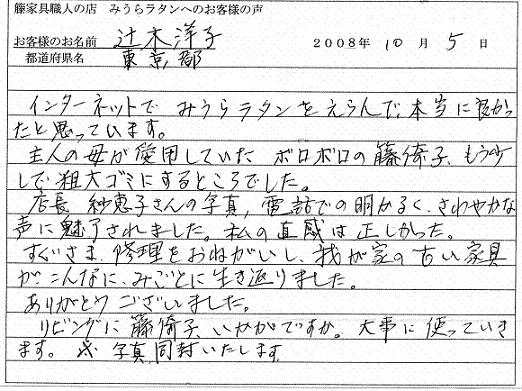 籐家具職人の店 みうらラタンへのお客様の声
お客様のお名前 辻木洋子 2008年 10月 5日
都道府県名 東京都
インターネットで みうらラタンをえらんで、本当に良かっ
たと思っています。
主人の母が愛用していた ボロボロの籐倚子、もう少
しで粗大ゴミにするところでした。
店長 紗恵子さんの写真、電話での明かるく、さわやかな
声に魅了されました。私の直感は正しかった。
すぐさま、修理をおねがいし、我が家の古い家具
が、こんなに、みごとに生き返りました。
ありがとうございました。
リビングに籐倚子、いかがですか。大事に使っていき
ます。 写真、同封いたします。